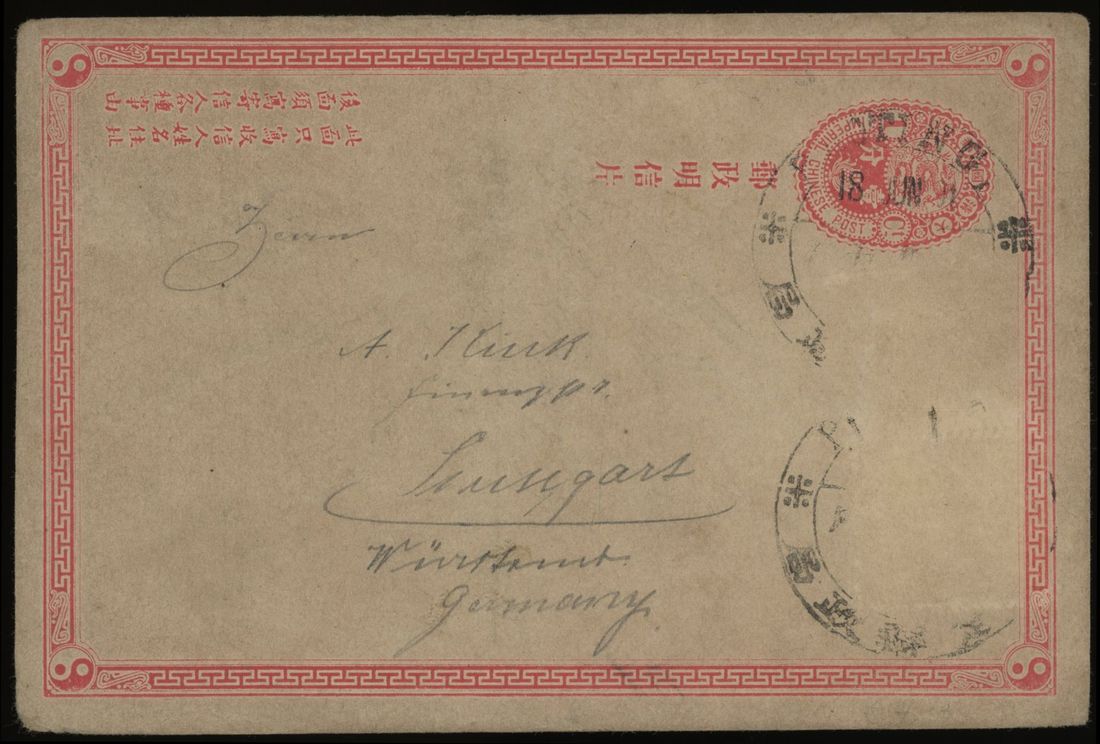 此面只寫收信人姓名住址
後面須寫寄信人各種事由
郵政明信片
IMPERIAL CHINESE POST
18 JUN
Herrn
A. Kink
Stuttgart
Württemb.
Germany